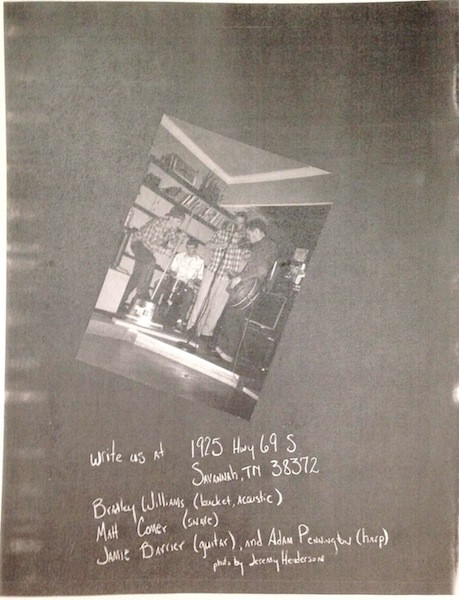 write us at 1925 Hwy 69 S
Savannah, TN 38372
Bradley Williams (bucket, acoustic)
Matt Comer (snare)
Jamie Barrier (guitar), and Adam Pennington (harp)
photo by Jeremy Henderson